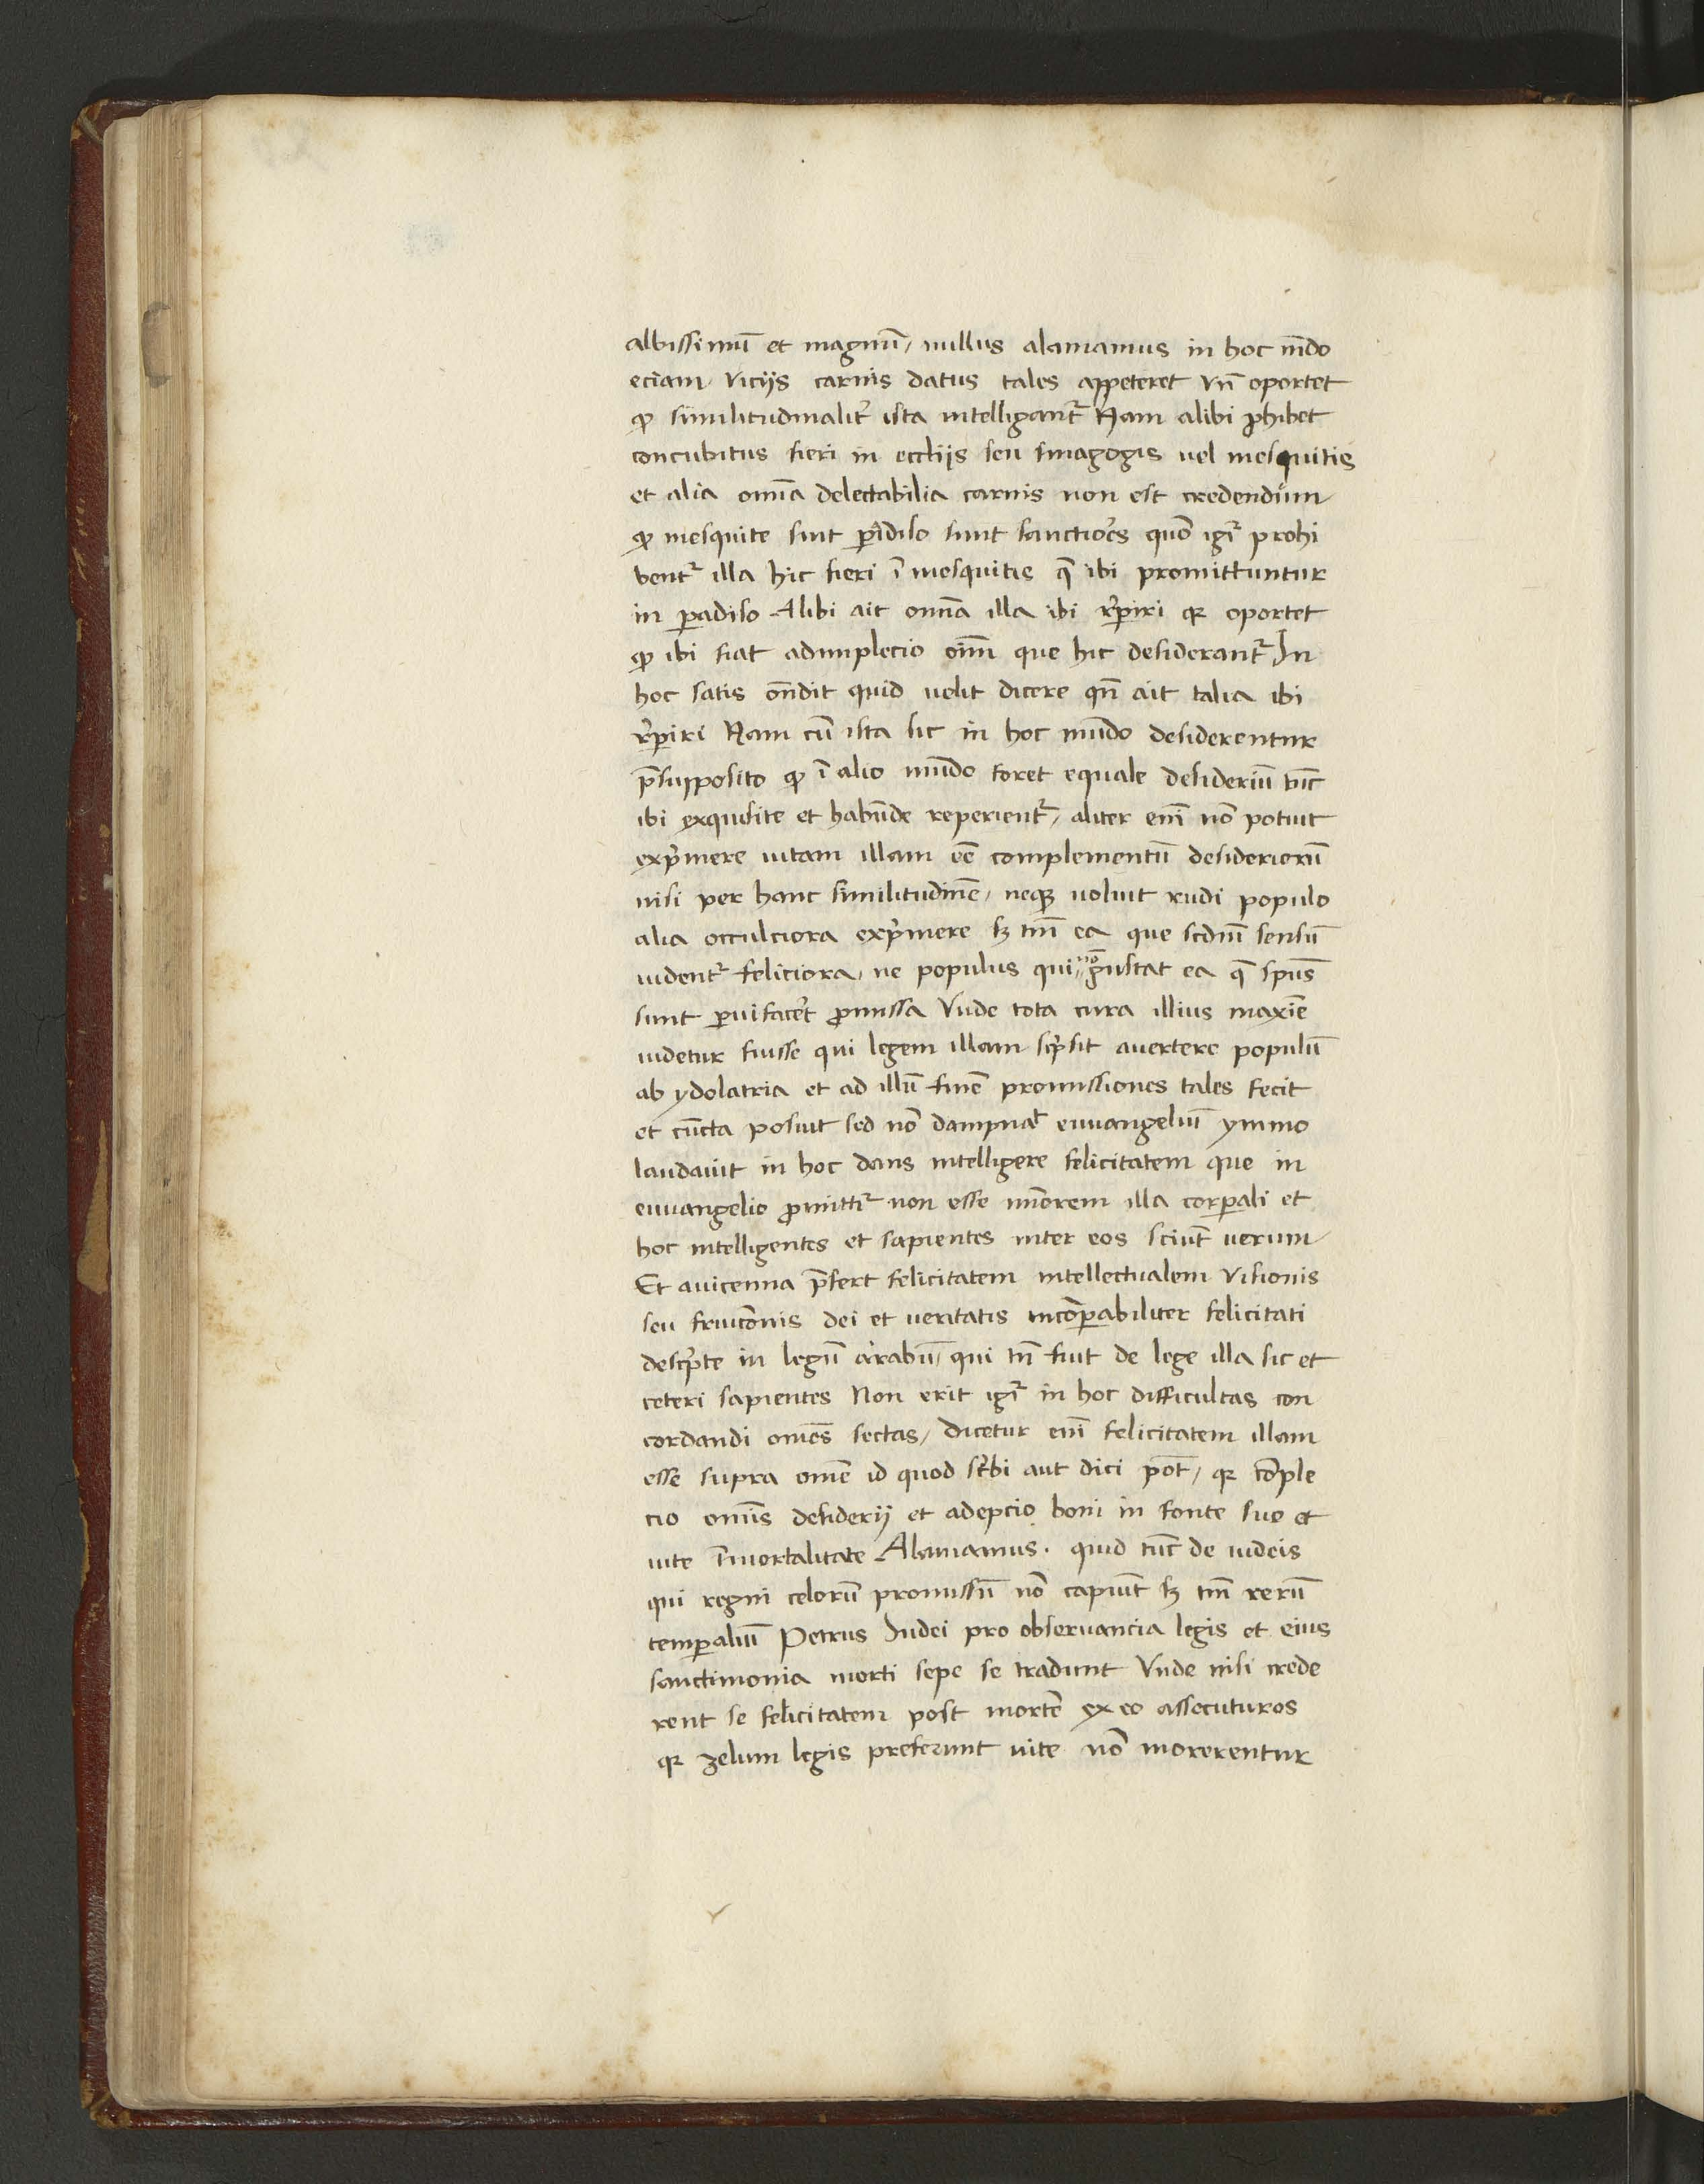 albissimū et magnū, nullus alamamus in hoc mūdo
eciam viciis carnis datus tales appeteret Vn̄ oportet
qꝫ similitudinalit̉ ista intelligant᷑ Nam alibi ꝓhibet
concubitus fieri in eccliis seu sinagogis uel mesquitis
et alia om̄ia delectabilia carnis non est credendum
qꝫ mesquite sint ꝑadiso sunt sanctiores quō igr̄ prohi
bent᷑ illa hic fieri ī mesquitis q̄ ibi promittuntur
in ꝑadiso Alibi ait om̄ia illa ibi r̄ꝑiri qꝛ oportet
qꝫ ibi fiat adimplecio oīm que hic desiderant᷑ In
hoc satis on̄dit quid uelit dicere qn̄ ait talia ibi
r̄ꝑiri Nam cū ista sic in hoc mūdo desiderentur
p̄supposito qꝫ ī alio mūdo foret equale desideriū tūc
ibi exquisite et habūde reperient᷑, aliter enī nō potuit
exp̉mere uitam illam eē complementū desideriorū
nisi per hanc similitudinē, neqꝫ uoluit rudi populo
alia occulciora exp̉mere sꝫ tm̄ ea que scdm̄ sensū
uident᷑ feliciora, ne populus qui nō gustat ea q̄ sp̄us
sunt ꝑuifacet̉ ꝓmissa Vnde tota cura illius maxīe
uidetur fuisse qui legem illam sc̉psit auertere populū
ab ydolatria et ad illū finē promissiones tales fecit
et cūcta posuit sed nō dampnat̉ euuangeliū ymmo
laudauit in hoc dans intelligere felicitatem que in
euuangelio ꝓmittit᷑ non esse mīorem illa corꝑali et
hoc intelligentes et sapientes inter eos sciūt uerum
Et auicenna p̄fert felicitatem intellectualem visionis
seu fruicōnis dei et ueritatis incōꝑabiliter felicitati
desc̉pte in legū arabū, qui tn̄ fuit de lege illa sic et
ceteri sapientes Non erit igr̄ in hoc difficultas con
cordandi omēs sectas, dicetur enī felicitatem illam
esse supra omē id quod sc̉bi aut dici pōt, qꝛ cōple
cio omīs desiderii et adepcio boni in fonte suo et
uite īmortalitate Alamamus. quid tūc de iudeis
qui regni celorū promissū nō capiūt sꝫ tm̄ rerū
temꝑaliū Petrus Iudei pro obseruancia legis et eius
sanctimonia morti sepe se tradunt Vnde nisi crede
rent se felicitatem post mortē ex eo assecuturos
qꝛ zelum legis preferunt uite nō morerentur